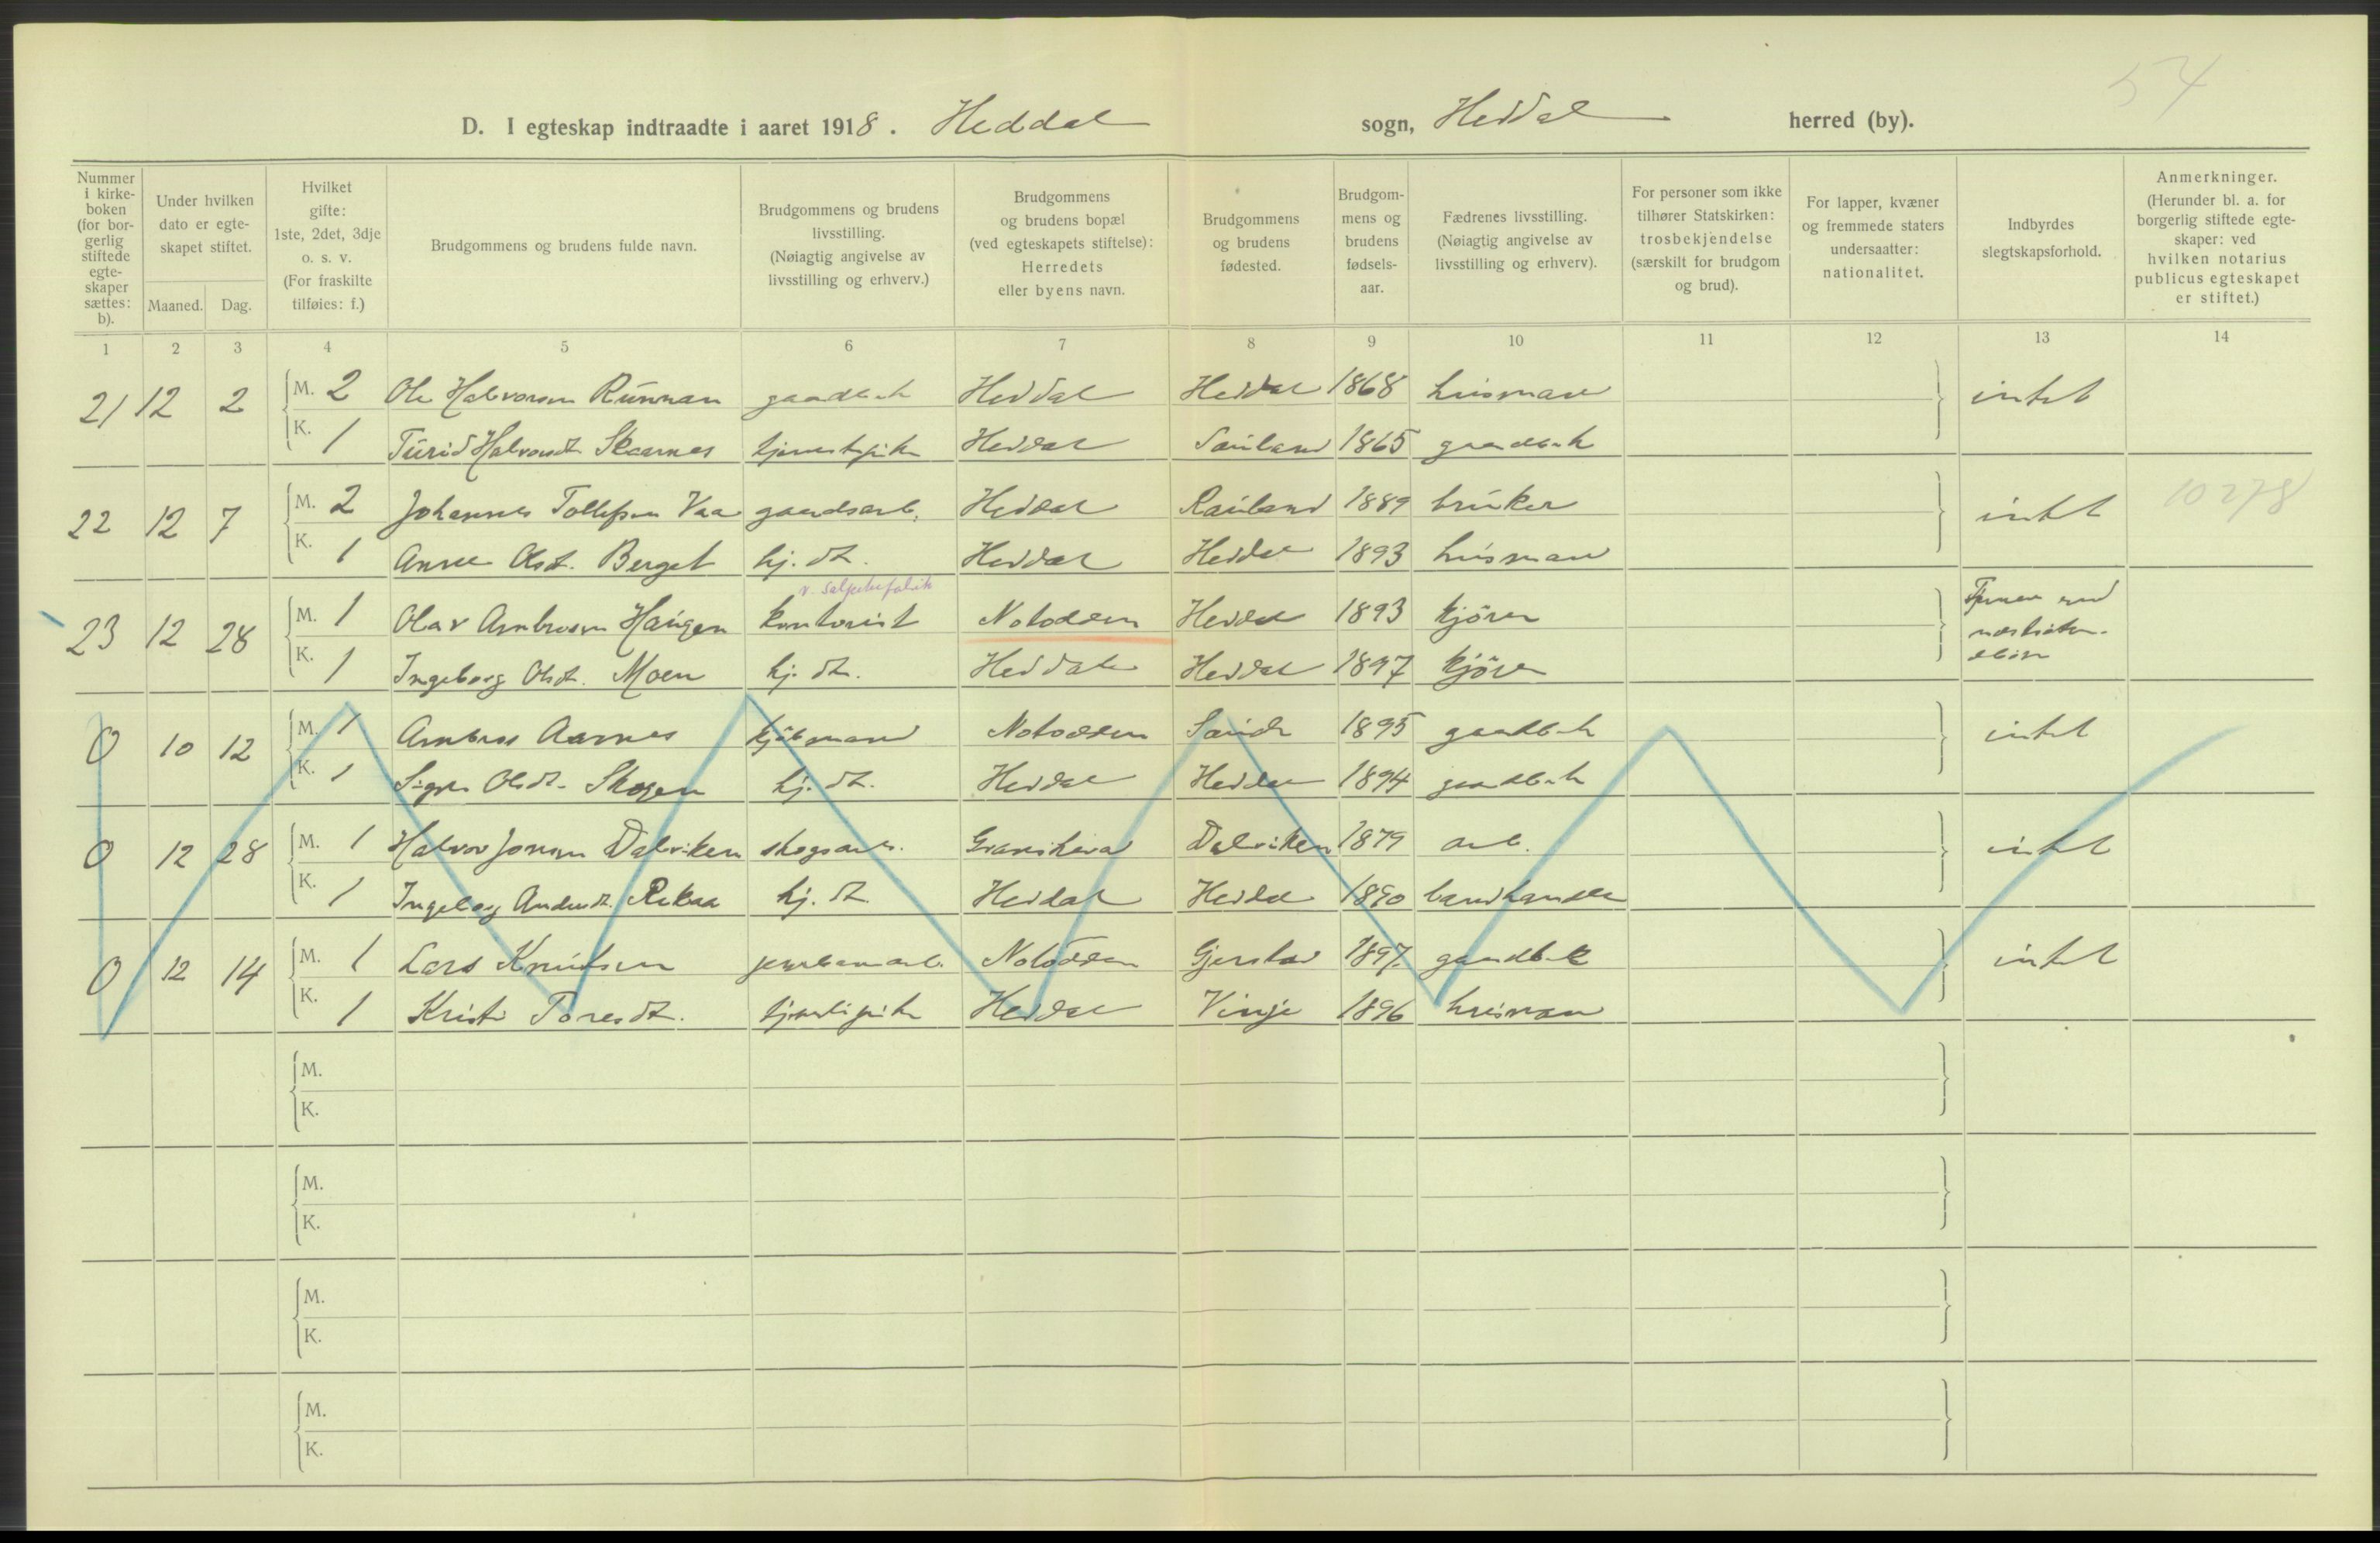 54
D. I egteskap indtraadte i aaret 1918. Heddal sogn, Heddal herred (by).
Nummer i kirkeboken (for borgerlig stiftede egteskaper sættes: b).
Under hvilken dato er egteskapet stiftet.
Maaned. Dag.
Hvilket gifte: 1ste, 2det, 3dje o. s. v. (For fraskilte tilføies: f.)
Brudgommens og brudens fulde navn.
Brudgommens og brudens livsstilling. (Nøiagtig angivelse av livsstilling og erhverv.)
Brudgommens og brudens bopæl (ved egteskapets stiftelse): Herredets eller byens navn.
Brudgommens og brudens fødested.
Brudgommens og brudens fødselsaar.
Fædrenes livsstilling. (Nøiagtig angivelse av livsstilling og erhverv).
For personer som ikke tilhører Statskirken: trosbekjendelse (særskilt for brudgom og brud).
For lapper, kvæner og fremmede staters undersaatter: nationalitet.
Indbyrdes slegtskapsforhold.
Anmerkninger. (Herunder bl. a. for borgerlig stiftede egteskaper: ved hvilken notarius publicus egteskapet er stiftet.)
1 2 3 4 5 6 7 8 9 10 11 12 13 14
21 12 2 M. 2 Ole Halvorsen Runnan gaardbrk Heddal Heddal 1868 husman intet
K. 1 Turid Halvorsdt. Skaarnes tjenestepike Heddal Sauland 1865 gaardbrk
22 12 7 M. 2 Johannes Tollefsen Vaa gaardsarb. Heddal Rauland 1889 bruker intet 10278
K. 1 Anne Olsdt. Berget hj. dt. Heddal Heddal 1893 husman
v. salpeterfabrik
23 12 28 M. 1 Olav Ambrosen Haugen kontorist Notodden Heddal 1893 kjører
K. 1 Ingeborg Olsdt. Moen hj. dt. Heddal Heddal 1897 kjører
0 10 12 M. 1 Ambros Aarnes kjøbmand Notodden 1895 gaardbrk intet
K. 1 Signe Olsdt. Skogen hj. dt. Heddal Heddal 1894 gaardbrk
0 12 28 M. 1 Halvor Jonsen Dalviken skogsarb. Gransherad Dalviken 1879 arb. intet
K. 1 Ingeborg Andersdt. hj. dt. Heddal Heddal 1890 landhandler
0 12 14 M. 1 Lars Knutsen Notodden Gjerstad 1897 gaardbrk intet
K. 1 Kristi Toresdt. tjenestepike Heddal Vinje 1896 husman
M.
K.
M.
K.
M.
K.
M.
K.